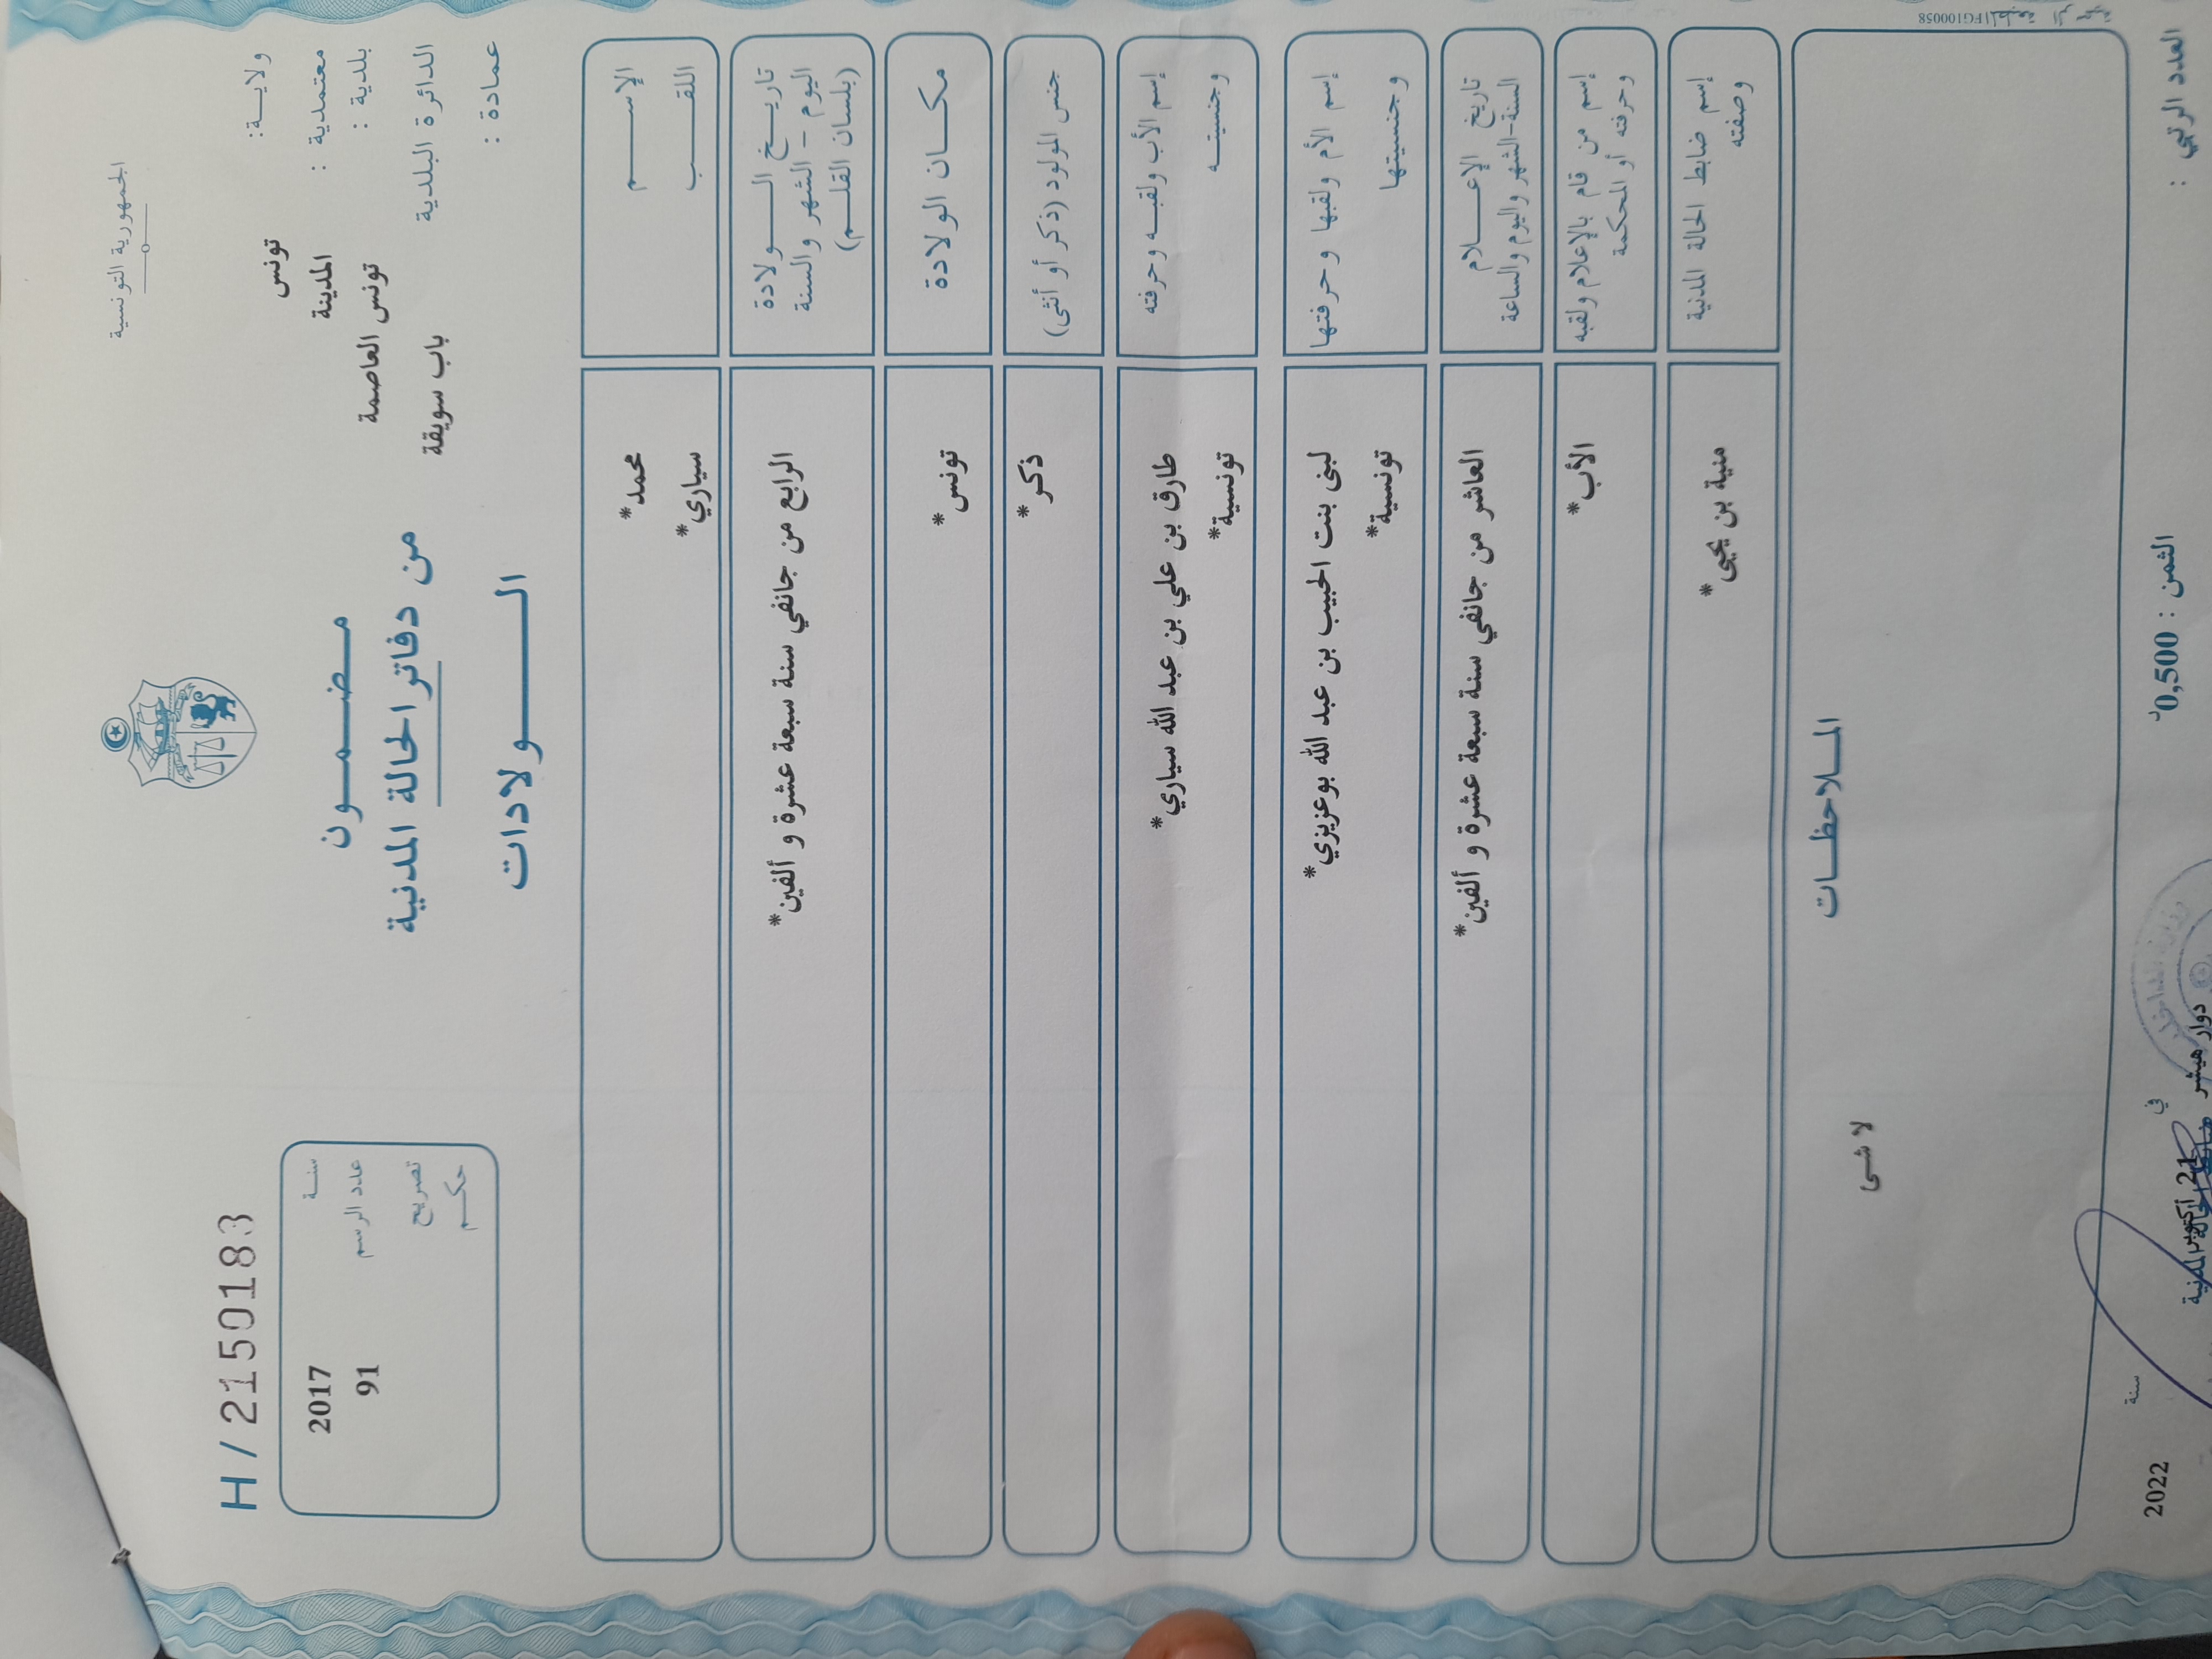 الجمهورية التونسية
H / 2150183
ولايـــة: تونس
معتمدية : المدينة
بلدية : تونس العاصمة
الدائرة البلدية باب سويقة
عمادة :
مـضـمـــون
من دفاتر الحالة المدنية
الـــــــولادات
سنـــة 2017
عدد الرسم 91
تصريح
حكــم
الإســـــم محمد*
اللقـــــب سياري*
تاريـــخ الـــــولادة
اليوم - الشهر والسنة
(بلسان القلـــم)
الرابع من جانفي سنة سبعة عشرة و ألفين*
مكـــان الولادة تونس*
جنس المولود (ذكر أو أنثى) ذكر*
إسم الأب ولقبـــه وحرفته طارق بن علي بن عبد الله سياري*
وجنسيتـــه تونسية*
إسم الأم ولقبها وحرفتها لبنى بنت الحبيب بن عبد الله بوعزيزي*
وجنسيتها تونسية*
تاريخ الإعـــلام
السنة-الشهر واليوم والساعة
العاشر من جانفي سنة سبعة عشرة و ألفين*
إسم من قام بالإعلام ولقبه
وحرفته أو المحكمة
الأب*
إسم ضابط الحالة المدنية
وصفته
منية بن يحيى*
المـــلاحظـــات
لا شى
FG100058
العدد الرتبي :
الثمن : 0,500
في 21 أكتوبر سنة 2022
دوار هيشر
ضابط الحالة المدنية